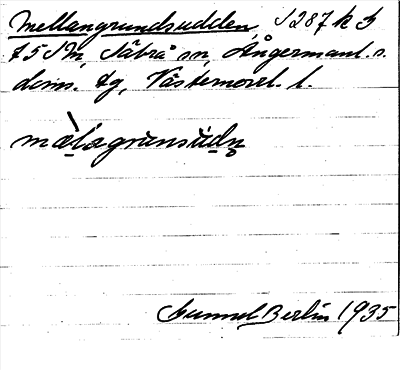 Mellangrundsudden, S 287 k b
f 5 S M, Säbrå sn, Ångermanl. s.
doms. tg, Västernorrl. l.
mæ̀lagrùnsùdn̥
Gunnel Berlin 1935